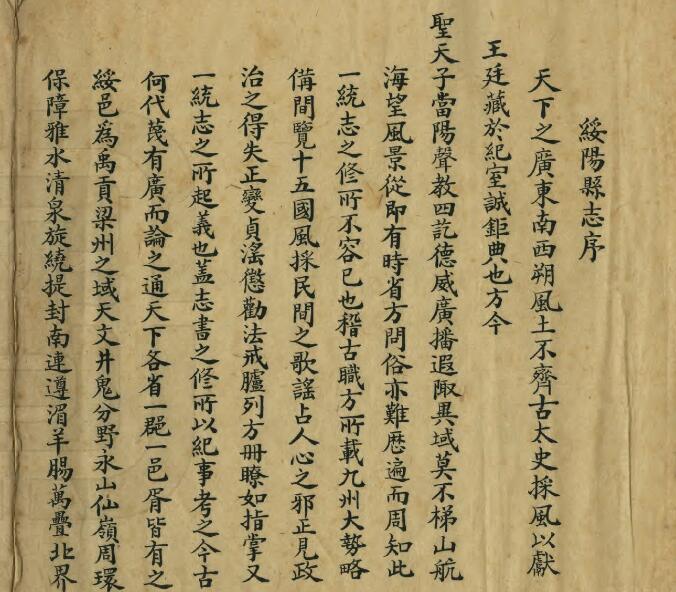 綏陽縣志序
天下之廣東南西朔風土不齊古太史採風以獻
王廷藏於紀室誠鉅典也方今
聖天子當陽聲教四訖德威廣播遐陬異域莫不梯山航
海望風景從即有時省方問俗亦難歷遍而周知此
一統志之修所不容已也稽古職方所載九州大勢略
備間覽十五國風採民間之歌謠占人心之邪正見政
治之得失正變貞滛懲勸法戒臚列方冊瞭如指掌又
一統志之所起義也蓋志書之修所以紀事考之今古
何代蔑有廣而論之通天下各省一郡一邑胥皆有之
綏邑為禹貢梁州之域天文井鬼分野永山仙嶺周環
保障雅水清泉旋繞提封南連遵湄羊腸萬疊北界